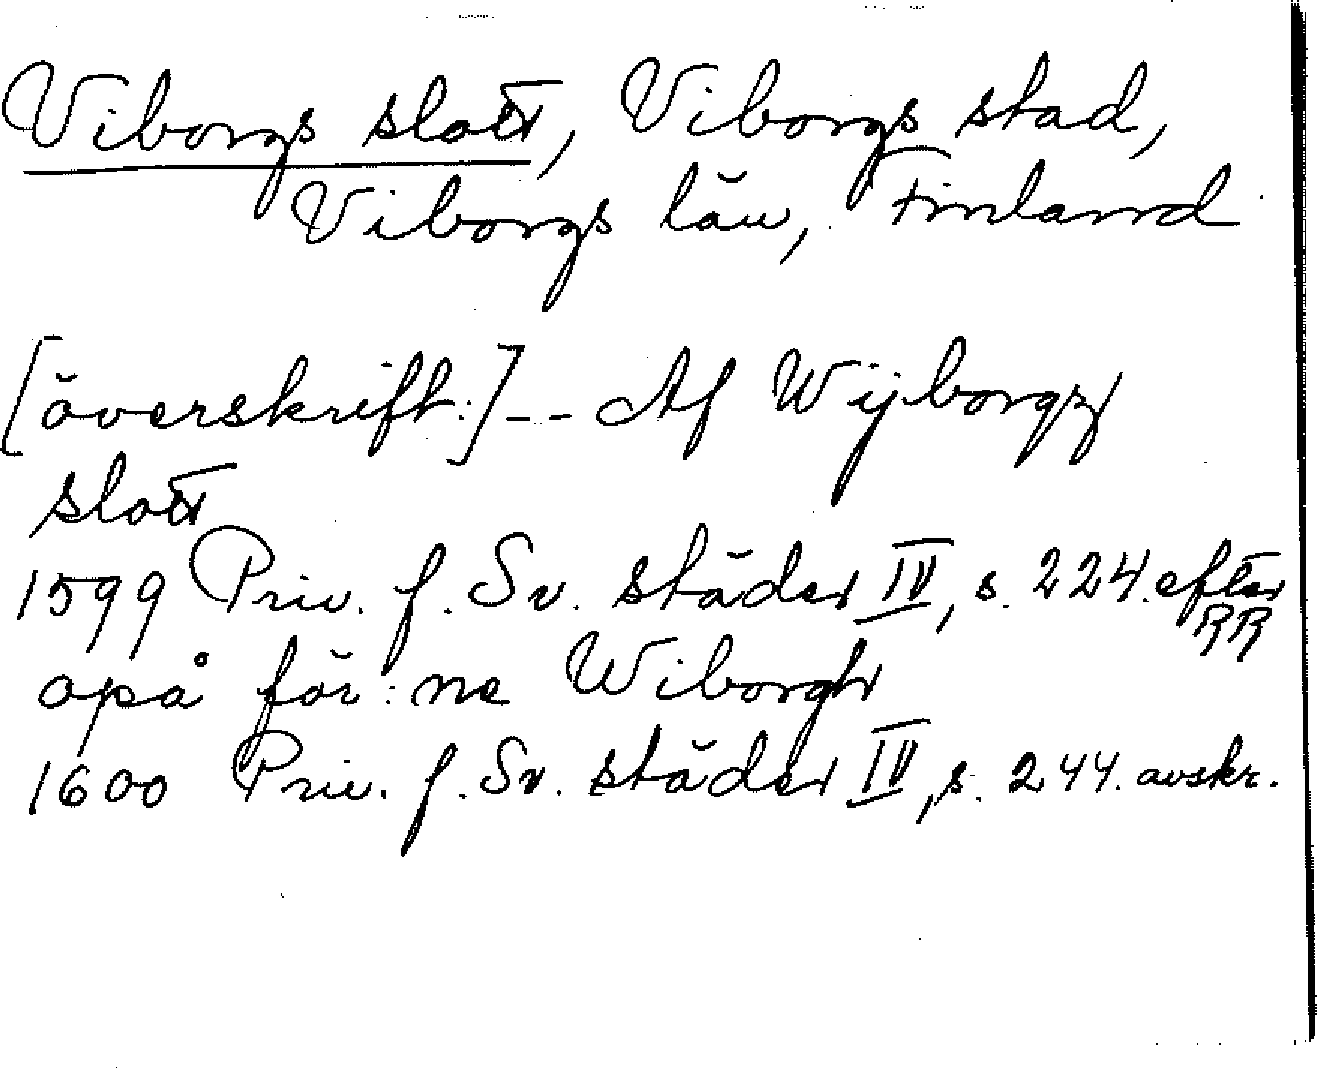 Viborgs slott, Viborgs stad,
Viborgs län, Finland
[överskrift:] -- Af Wijborgz
slott
1599 Priv. f. Sv. städer IV, s. 224. efter
RR
opå för:ne Wiborgh
1600 Priv. f. Sv. städer IV, s. 244. avskr.